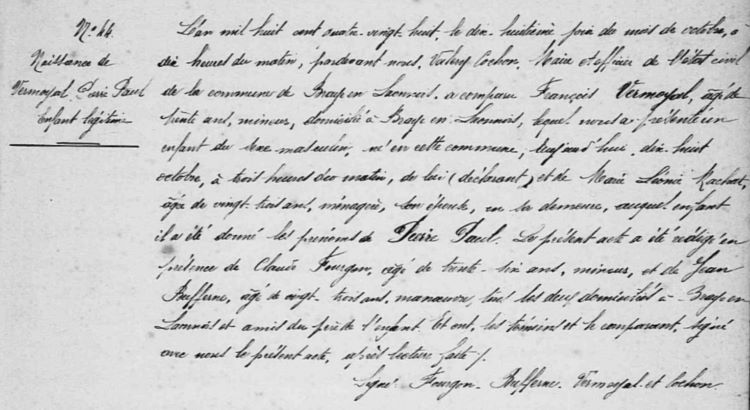 N° 44.
Naissance de
Vermoyal Pierre Paul
Enfant légitime
L'an mil huit cent quatre-vingt huit, le dix-huitième jour du mois de octobre, à
dix heures du matin, pardevant nous, Valéry Cochon, Maire et officier de l'état civil
de la commune de Braye en Laonnois, a comparu François Vermoyal, âgé de
trente ans, mineur, domicilié à Braye en Laonnois, lequel nous a présenté un
enfant du sexe masculin, né en cette commune, cejourd'hui, dix-huit
octobre, à trois heures du matin, de lui (déclarant) et de Marie Léonie Rachat,
âgée de vingt-trois ans, ménagère, son épouse, en sa demeure, auquel enfant
il a été donné les prénoms de Pierre Paul. Le présent acte a été rédigé en
présence de Claude Fourgon, âgé de trente-six ans, mineur, et de Jean
Bufferne, âgé de vingt-trois ans, manœuvre, tous les deux domiciliés à Braye en
Laonnois et amis du père de l'enfant. Et ont, les témoins et le comparant, signé
avec nous le présent acte, après lecture faite ./.
Signé: Fourgon - Bufferne - Vermoyal et Cochon